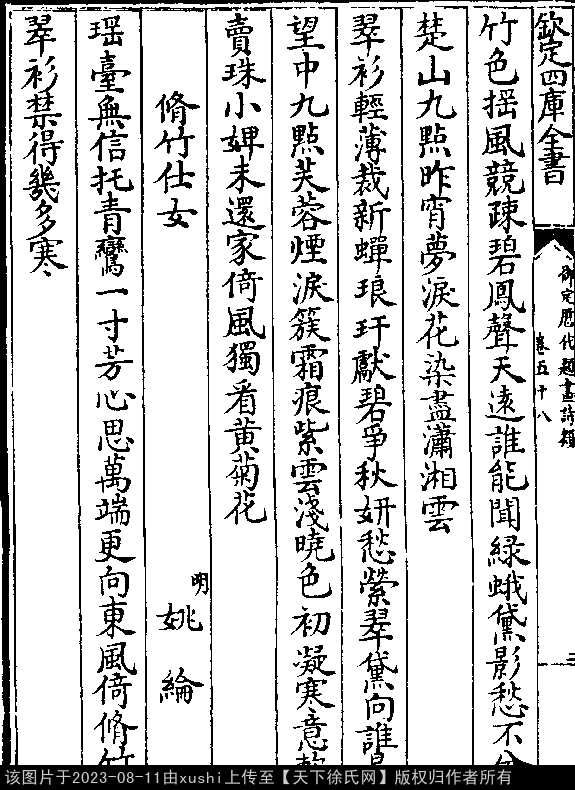 欽定四庫全書
御定歷代題畫詩類
卷五十八
竹色揺風競疎碧鳳聲天遠誰能聞緑蛾黛影愁不
楚山九點昨宵夢淚花染盡瀟湘雲
翠衫輕薄裁新蟬琅玕獻碧爭秋妍愁縈翠黛向誰
望中九點芙蓉煙淚簇霜痕紫雲淺曉色初凝寒意
賣珠小婢未還家倚風獨看黄菊花
脩竹仕女
明
姚綸
瑶臺無信托青鸞一寸芳心思萬端更向東風倚脩竹
翠衫禁得幾多寒
该图片于2023-08-11由xushi上传至【天下徐氏网】版权归作者所有